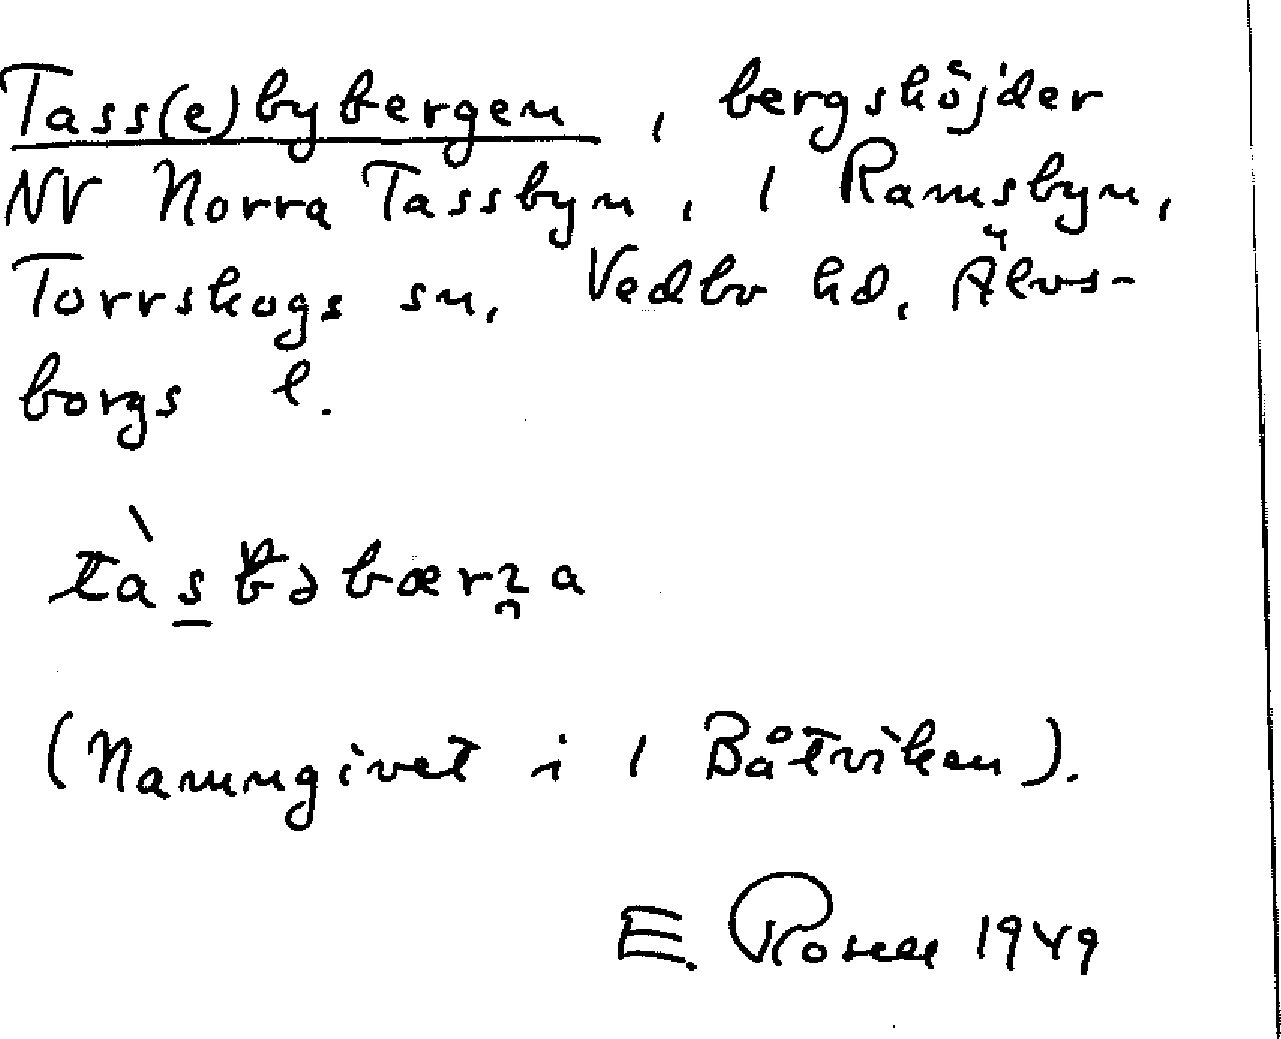 Tass(e)bybergen, bergshöjder
NV Norra Tassbyn, 1 Ramsbyn,
Torrskogs sn, Vedbo hd, Älvs-
borgs l.
tàsbəbærʒa
(Namngivet i 1 Båtviken).
E. Rosell 1949